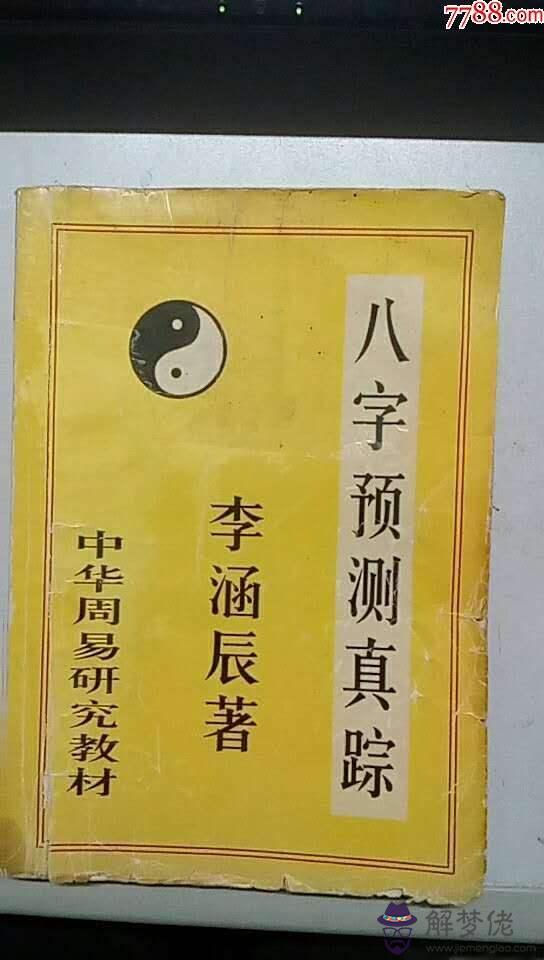 7788.com
八字预测真踪
李涵辰著
中华周易研究教材
解梦佬
www.jiemenglao.com